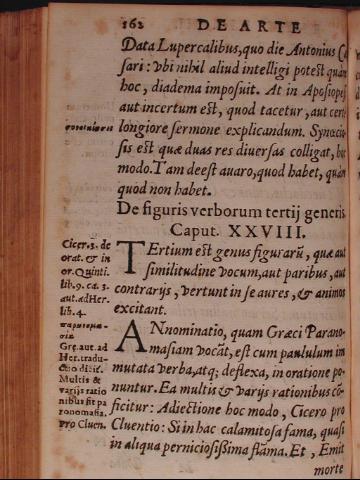 162 DE ARTE
Data Lupercalibus, quo die Antonius Cæ
sari: vbi nihil aliud intelligi potest quàm
hoc, diadema imposuit. At in Aposiopesi
aut incertum est, quod tacetur, aut certè
longiore sermone explicandum. Synœcio
sis est quæ duas res diuersas colligat, hoc
modo. Tam deest auaro, quod habet, quàm
quod non habet.
De figuris verborum tertij generis.
Caput. XXVIII.
TErtium est genus figurarū, quæ aut
similitudine vocum, aut paribus, aut
contrarijs, vertunt in se aures, & animos
excitant.
ANnominatio, quam Græci Parano-
masiam vocāt, est cum paululum im
mutata verba, atq; deflexa, in oratione po-
nuntur. Ea multis & varijs rationibus cō-
ficitur: Adiectione hoc modo, Cicero pro
Cluentio: Si in hac calamitosa fama, quasi
in aliqua perniciosissima flāma. Et, Emit
morte
Cicer. 3. de
orat. & in
or. Quinti.
lib. 9. ca. 3.
aut. ad Her.
lib. 4.
Gre. aut. ad
Her. tradu-
ctio dicit.
Multis &
varijs ratio
nibus fit pa
ronomasia.
Pro Cluen.